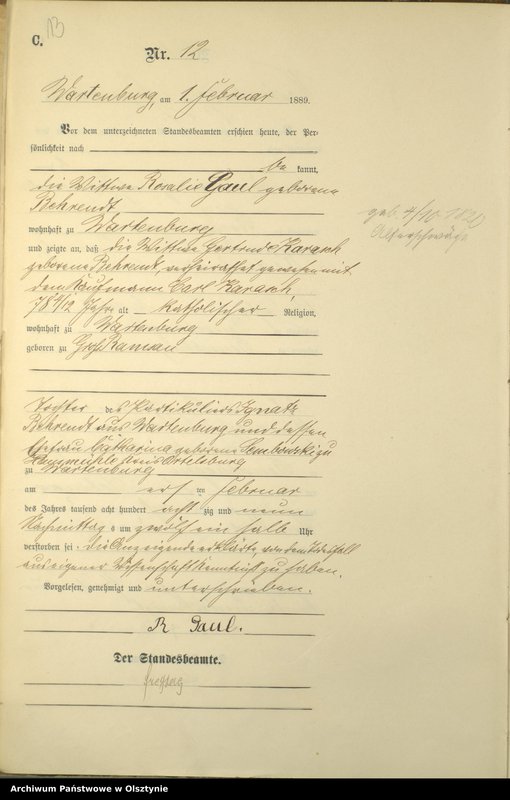 C.
13
Nr. 12
Wartenburg, am 1. Februar 1889.
Vor dem unterzeichneten Standesbeamten erschien heute, der Per-
sönlichkeit nach
be kannt,
die Wittwe Rosalie Gaul geborene
Behrendt
wohnhaft zu Wartenburg
und zeigte an, daß die Wittwe Gertrude
geborene Behrendt, verheirathet gewesen mit
dem Kaufmann Carl
Jahre alt katholischer Religion,
wohnhaft zu Wartenburg
geboren zu Groß Ramsau
Tochter des Partikuliers Ignatz
Behrendt aus Wartenburg und dessen
Ehefrau Catharina geborene
Kreis Ortelsburg
zu Wartenburg
am ersten Februar
des Jahres tausend acht hundert acht zig und neun
Nachmittags um zwölf ein halb Uhr
verstorben sei. Die Anzeigende erklärte, von dem Sterbfall
aus eigener Wissenschaft Kenntniß zu haben.
Vorgelesen, genehmigt und unterschrieben.
R Gaul.
Der Standesbeamte.
Freytag
geb. 4/10
Altersschwäche
Archiwum Państwowe w Olsztynie